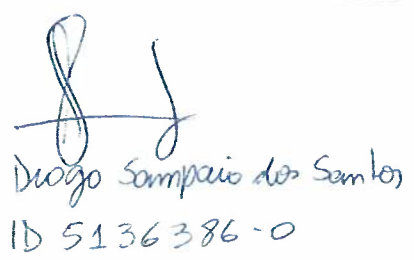 Diogo Sampaio dos Santos
ID 5136386-0